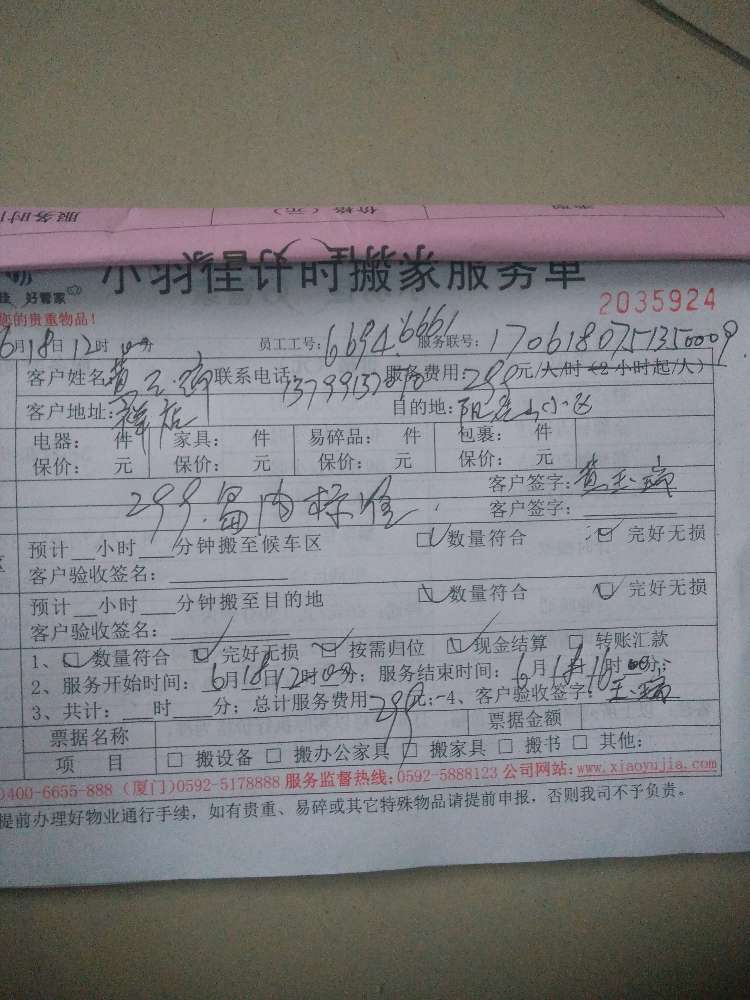 服务时间
价格（元）
小羽佳计时搬家服务单
佳 好管家
您的贵重物品！
2035924
6月18日12时00分 员工工号：6694.6661 服务联号：1706180751350009
客户姓名：黄玉瑞 联系电话： 服务费用：299元/人/时（2小时起/人）
客户地址：祥店 目的地：
电器： 件 家具： 件 易碎品： 件 包裹： 件
保价： 元 保价： 元 保价： 元 保价： 元
客户签字：黄玉瑞
299.
客户签字：
预计__小时___分钟搬至候车区 数量符合 完好无损
客户验收签名：
预计__小时___分钟搬至目的地 数量符合 完好无损
客户验收签名：
1、 数量符合 完好无损 按需归位 现金结算 转账汇款
2、服务开始时间：6月18日12时00分；服务结束时间：6月18日16时00分；
3、共计：___时___分；总计服务费用299元；4、客户验收签字：玉瑞
票据名称 票据金额
项 目 搬设备 搬办公家具 搬家具 搬书 其他：
)400-6655-888（厦门)0592-5178888 服务监督热线：0592-5888123 公司网站：www.xiaoyujia.com
提前办理好物业通行手续，如有贵重、易碎或其它特殊物品请提前申报，否则我司不予负责。